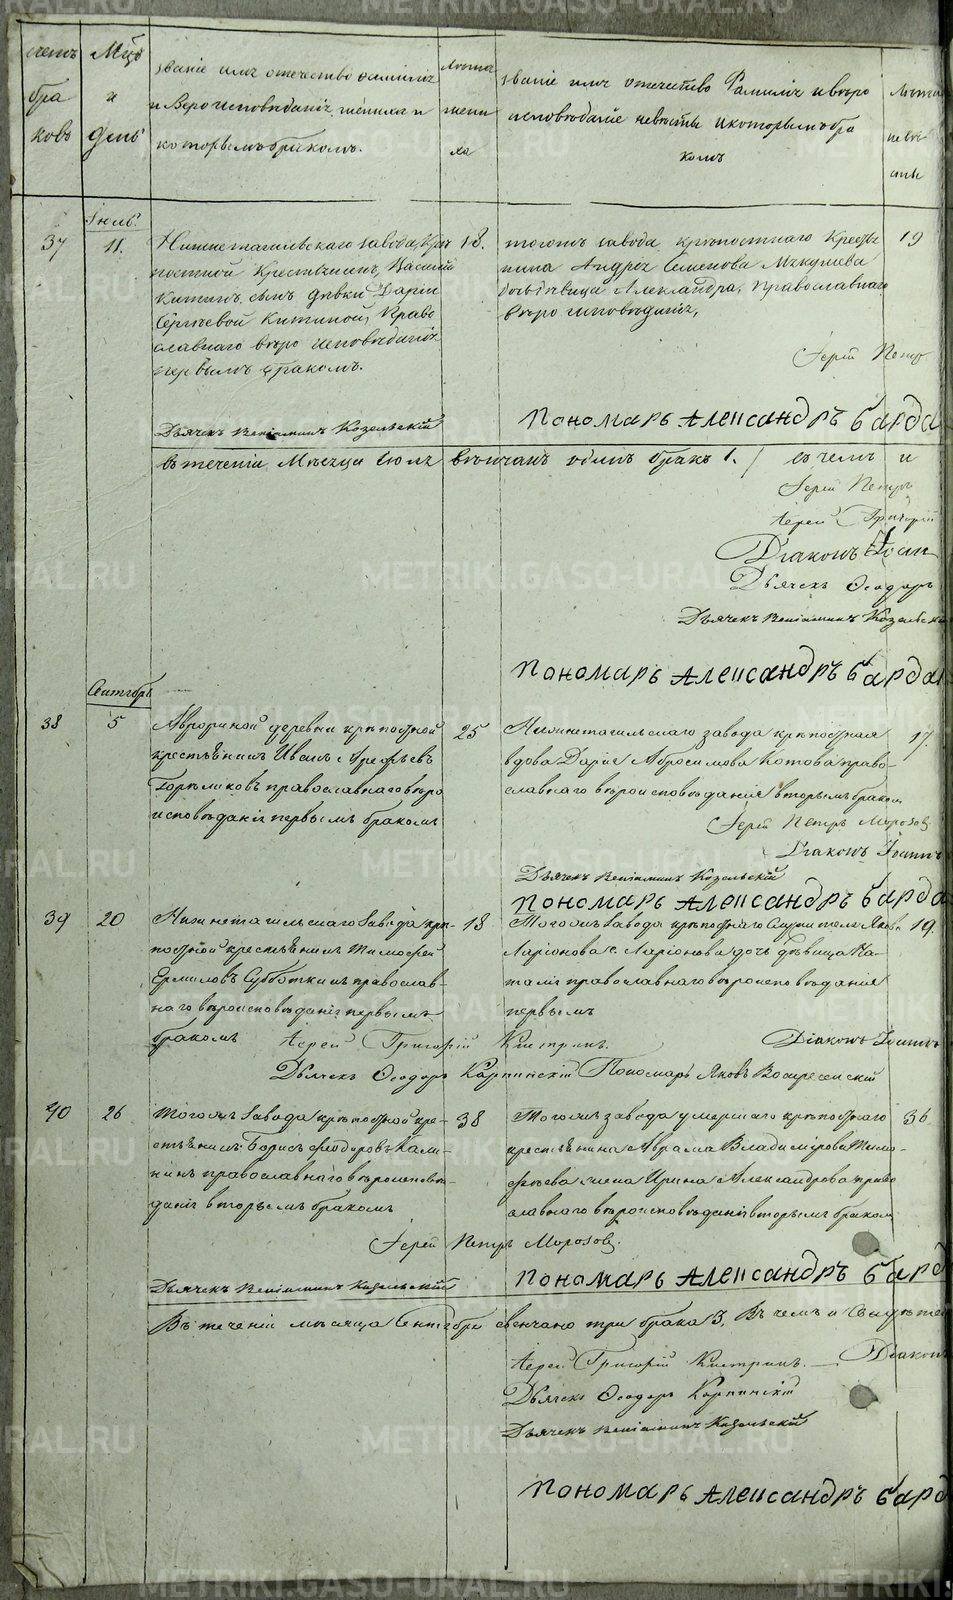 METRIKI.GASO-URAL.RU
счетъ браковъ
Мцъ и день
званіе имя отечество фамилія
и вероисповѣданіе жениха и
которымъ бракомъ.
лѣта жениха
званіе имя отечество Фамилія и вѣро
исповѣданіе невѣсты и которымъ бра
комъ
лѣта невѣсты
Іюль.
37
11.
Нижнетагильскаго завода крѣ
постной Крестьянинъ, Василій
Китинъ, сынъ дѣвки Даріи
Сергѣевой Китиной, Право
славнаго вѣро исповѣданія
первымъ бракомъ.
18.
тогожъ завода крѣпостнаго Кресть
янина Андрея Семенова
дочь дѣвица Александра, Православнаго
вѣро исповѣданія,
19
Іерей Петръ
Дьячекъ Веніаминъ Козельскій
Пономарь Александръ Барда
въ теченіи Мѣсяца Іюля вѣнчанъ одинъ бракъ 1. / въ чемъ и
Іерей Петръ
Іерей Григорій
Діаконъ Іоан
Дьячекъ Ѳеодоръ
Дьячекъ Веніаминъ Козельскій
Пономарь Александръ Барда
Сентябрь
38
5
Аврориной деревни крѣпостной
крестьянинъ Иванъ Арефьевъ
Горѣликовъ православнаго вѣро
исповѣданія первымъ бракомъ
25
Нижнетагильскаго завода крѣпостная
вдова Дарія Абросимова Котова право-
славнаго вѣроисповѣданія вторымъ браком
17.
Іерей Петръ Морозов
Діаконъ Іоаннъ
Дьячекъ Веніаминъ Козельскій
Пономарь Александръ Барда
39
20
Нижнетагильскаго Завода крѣ-
постной крестьянинъ Тимофей
Ермиловъ Субботкинъ православ-
наго вѣроисповѣданія первымъ
бракомъ
18
Тогожъ Завода крѣпостнаго Яков.
Ларіонова Ларіонова дочь дѣвица На-
талія православнаго вѣроисповѣданія
первымъ
19.
Іерей Григорій Кистринъ.
Діаконъ Іоаннъ
Дьячекъ Ѳеодоръ Карпинскій Пономарь Яковъ Воскресенскій
40
26
Тогожъ Завода крѣпостной кре-
стьянинъ Борисъ Феодоровъ Кали-
нинъ православнаго вѣроисповѣ-
данія вторымъ бракомъ
38
Тогожъ завода умершаго крѣпостнаго
крестьянина Абрама Владимірова Тимо-
феева жена Ирина Александрова право
славнаго вѣроисповѣданія вторымъ браком
36
Іерей Петръ Морозов.
Дьячекъ Веніаминъ Козельскій
Пономарь Александръ Бард
Въ теченіи мѣсяца Сентября венчано три брака 3, Въ чемъ и Свидѣтел
Іерей Григорій Кистринъ. — Діакон
Дьячекъ Ѳеодоръ Карпинскій
Дьячекъ Веніаминъ Козельскій
Пономарь Александръ Бард
METRIKI.GASO-URAL.RU